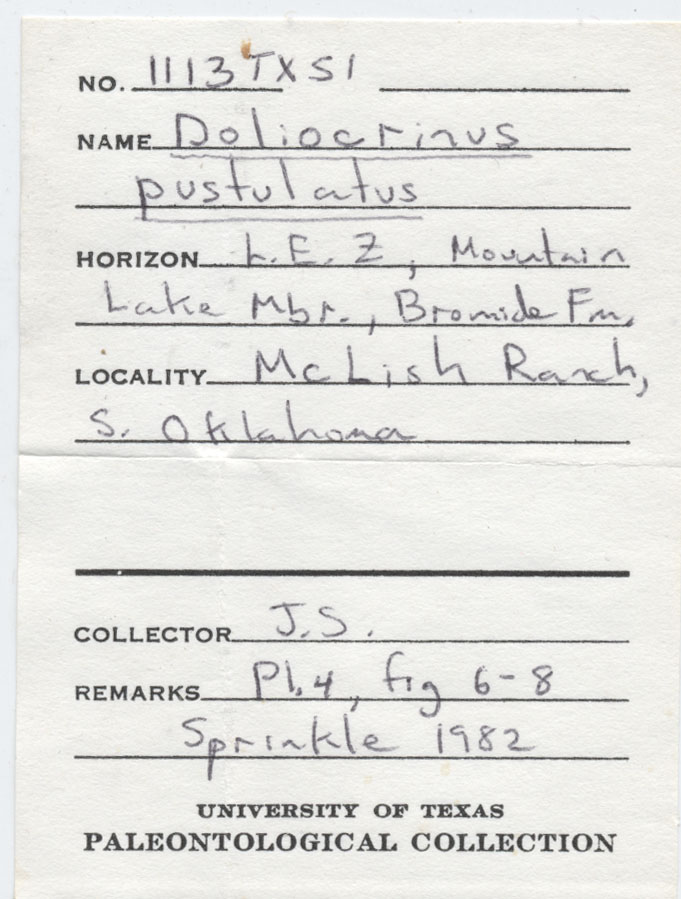 NO. 1113TX51
NAME Doliocrinus
pustulatus
HORIZON L.E.Z, Mountain
Lake Mbr., Bromide Fm.
LOCALITY McLish Ranch,
S. Oklahoma
COLLECTOR J.S.
REMARKS Pl. 4, fig 6-8
Sprinkle 1982
UNIVERSITY OF TEXAS
PALEONTOLOGICAL COLLECTION